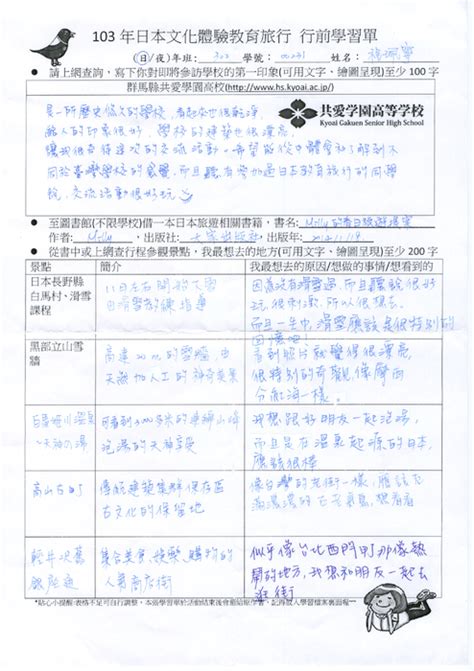 103 年日本文化體驗教育旅行 行前學習單
(日/夜)年班: 303 學號: 姓名:
● 請上網查詢，寫下你對即將參訪學校的第一印象(可用文字、繪圖呈現)至少 100 字
群馬縣共愛學園高校(http://www.hs.kyoai.ac.jp/)
是一所歷史悠久的學校，看起來也很乾淨，
給人的印象很好，學校的建築也很漂亮，
讓我很期待這次的交流活動。希望能從中體會和了解到不
同於臺灣學校的氛圍，而且聽有參加過日本教育旅行的同學
說，交流活動很好玩
共愛学園高等学校
Kyoai Gakuen Senior High School
● 至圖書館(不限學校)借一本日本旅遊相關書籍，書名: Milly
作者: Milly ，出版社: ，出版年:
● 從書中或上網查行程參觀景點，我最想去的地方(可用文字、繪圖呈現)至少 200 字
景點 簡介 我最想去的原因/想做的事情/想看到的
日本長野縣
白馬村、滑雪
課程
11日在石
由滑雪教練指導
因為沒有滑雪過，而且聽說很好
玩很刺激，所以很想去。
而且一生中，滑雪應該是很特別的
回憶吧！
黑部立山雪
牆
高達20m的雪牆，由
天然和人工的神奇美景
看到照片就覺得很漂亮
很特別的奇觀，像摩西
分紅海一樣。
溫泉
~天神の湯
可看到3000多米的連綿山峰
泡湯的天神享受
我想跟好朋友一起泡湯，
而且是在溫泉起源的日本，
應該很棒
高山古町
傳統建築集群保存區
古文化的保留地
像台灣的老街一樣，應該充
滿濃濃的古老氣息，想看看
輕井沢舊
銀座通
集合美食、娛樂、購物的
人氣商店街
似乎像台北西門町那樣熱
鬧的地方，我想和朋友一起去
逛街
*貼心小提醒:表格不足可自行調整，本張學習單於活動結束後會繳給原作者，記得放入學習檔案裏面喔~~